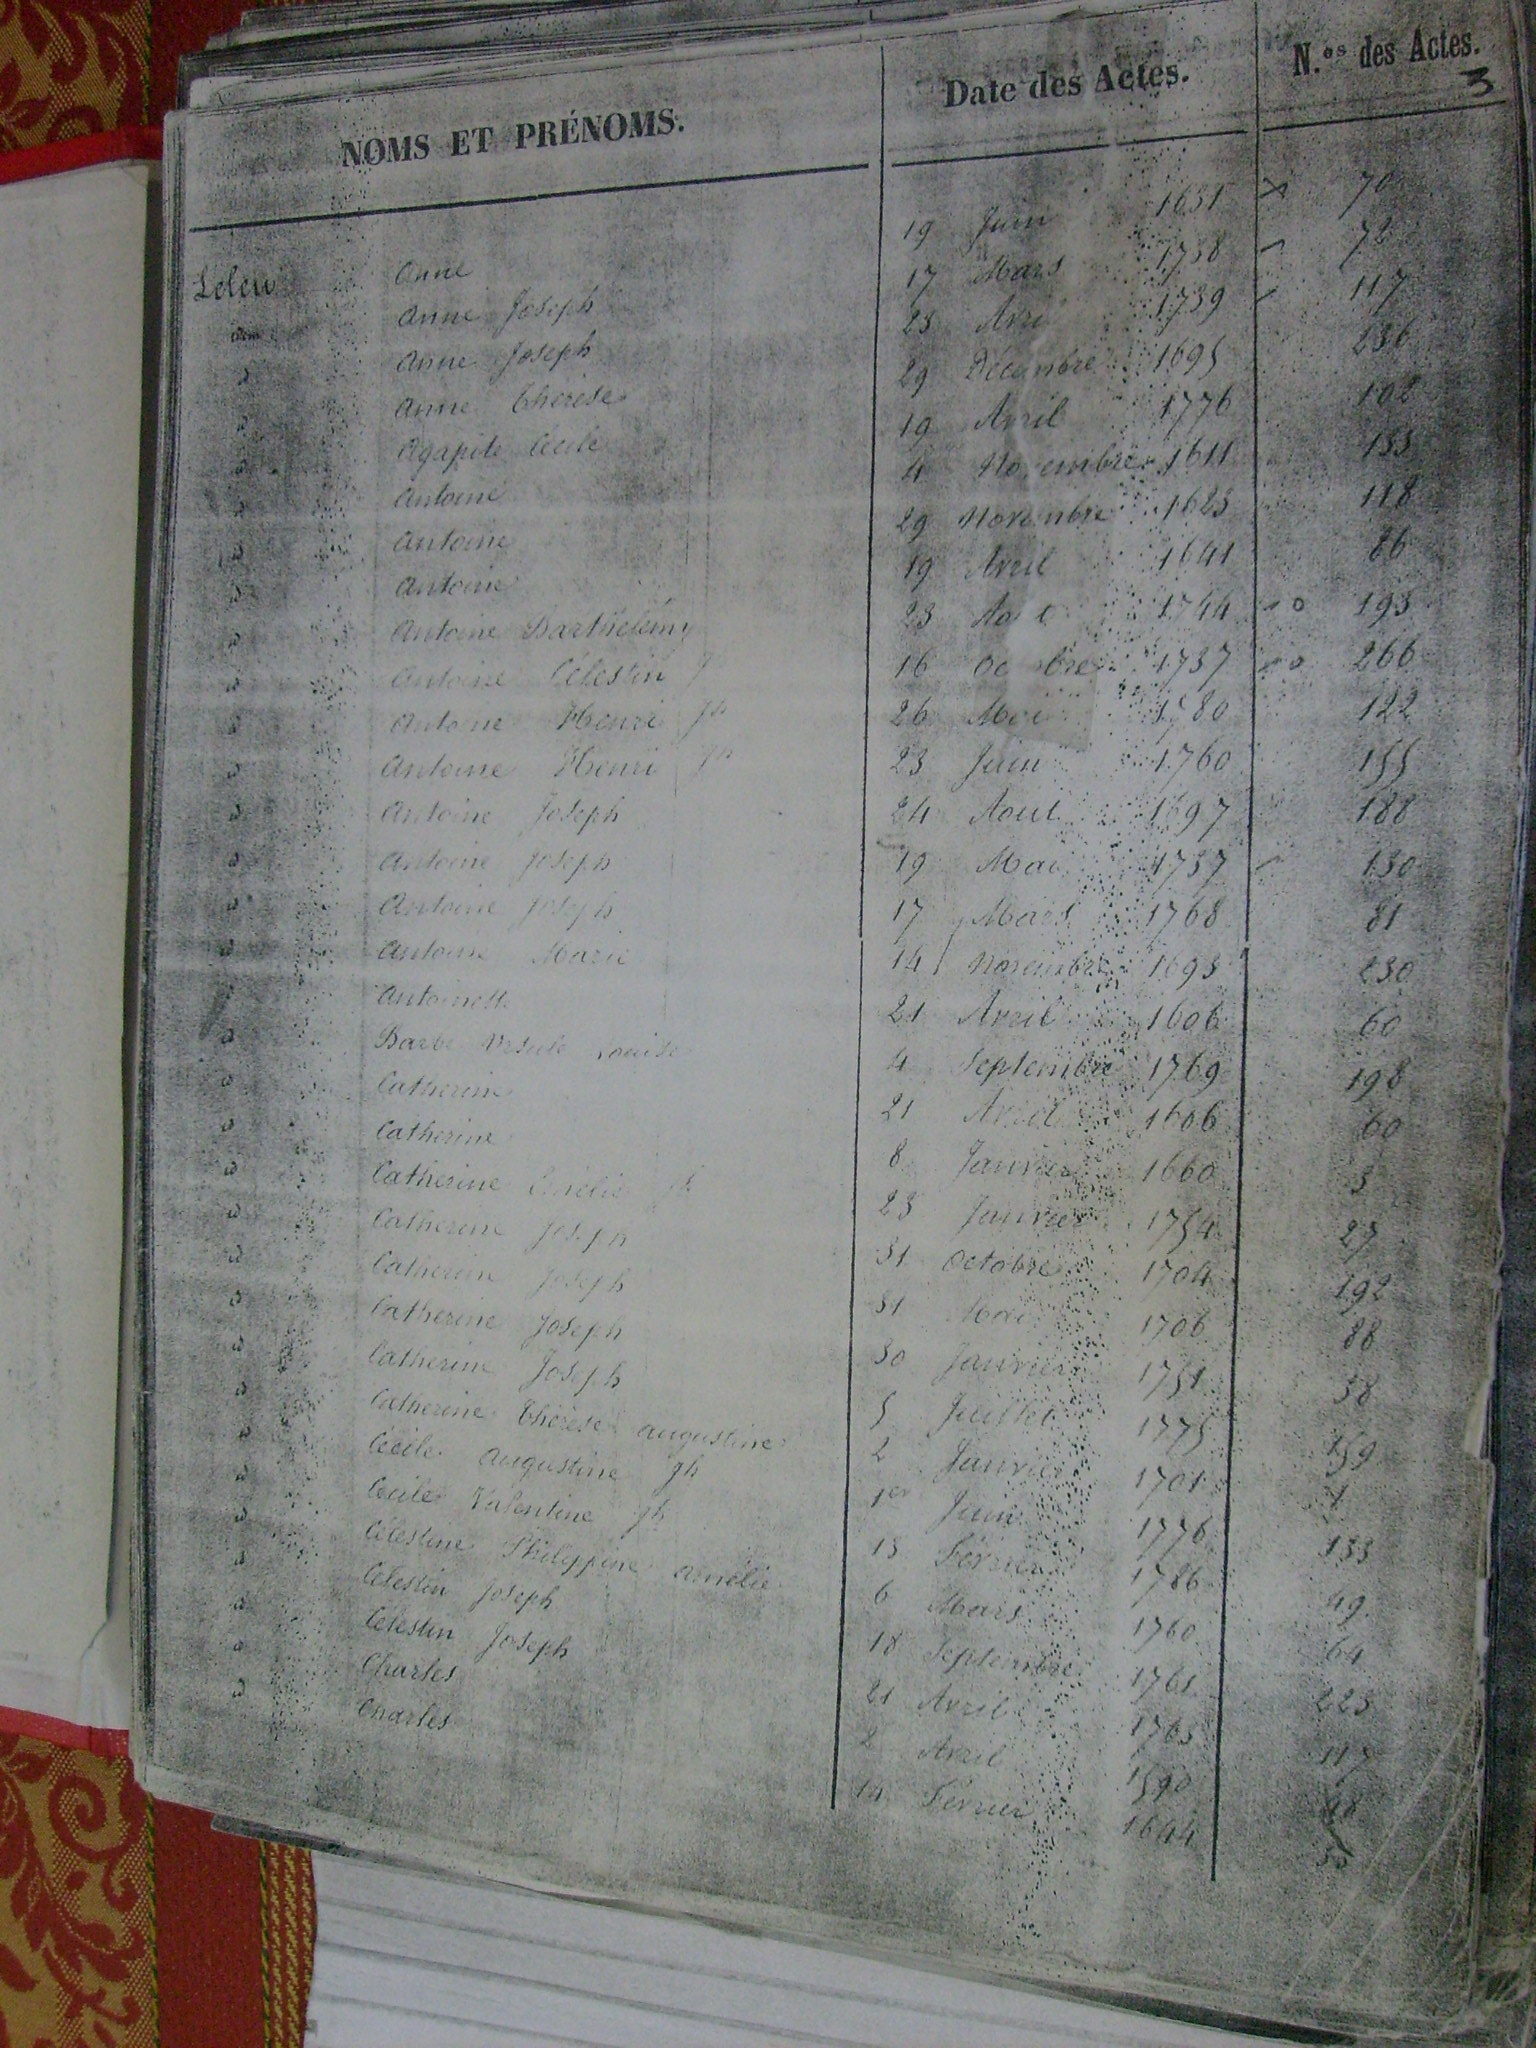 NOMS ET PRÉNOMS. Date des Actes. N.os des Actes.
3
Leleu Anne 19 Juin 1631 x 70
id Anne Joseph 17 Mars 1738 72
id Anne Joseph 23 Avril 1739 117
id Anne Thérèse 29 Décembre 1695 236
id Agapite Cécile 19 Avril 1776 102
id Antoine 4 Novembre 1611 133
id Antoine 29 Novembre 1623 118
id Antoine 19 Avril 1641 86
id Antoine Barthélémy 23 Aout 1744 193
id Antoine Célestin J 16 Octobre 1737 266
id Antoine Henri Jh 26 Mai 1780 122
id Antoine Henri Jh 23 Juin 1760 155
id Antoine Joseph 24 Aout 1697 188
id Antoine Joseph 19 Mai 1737 130
id Antoine Joseph 17 Mars 1768 81
id Antoine Marie 14 Novembre 1693 230
Antoinette 21 Avril 1606 60
id Barbe Ursule Louise 4 Septembre 1769 198
id Catherine 21 Avril 1606 60
id Catherine 8 Janvier 1660 3
id Catherine Jh 23 Janvier 1754 27
id Catherine Joseph 31 Octobre 1704 192
id Catherine Joseph 31 Mai 1706 88
id Catherine Joseph 30 Janvier 1751 38
id Catherine Joseph 5 Juillet 1775 159
id Catherine Thérèse Augustine 2 Janvier 1701 1
id Cécile Augustine Jh 1er Juin 1776 133
id Cécile Valentine Jh 13 Février 1786 49
id Célestine Philippine Amélie 6 Mars 1760 64
id Célestin Joseph 18 Septembre 1761 223
id Célestin Joseph 21 Avril 1763 117
id Charles 2 Avril 1590 48
id Charles 14 Février 1644